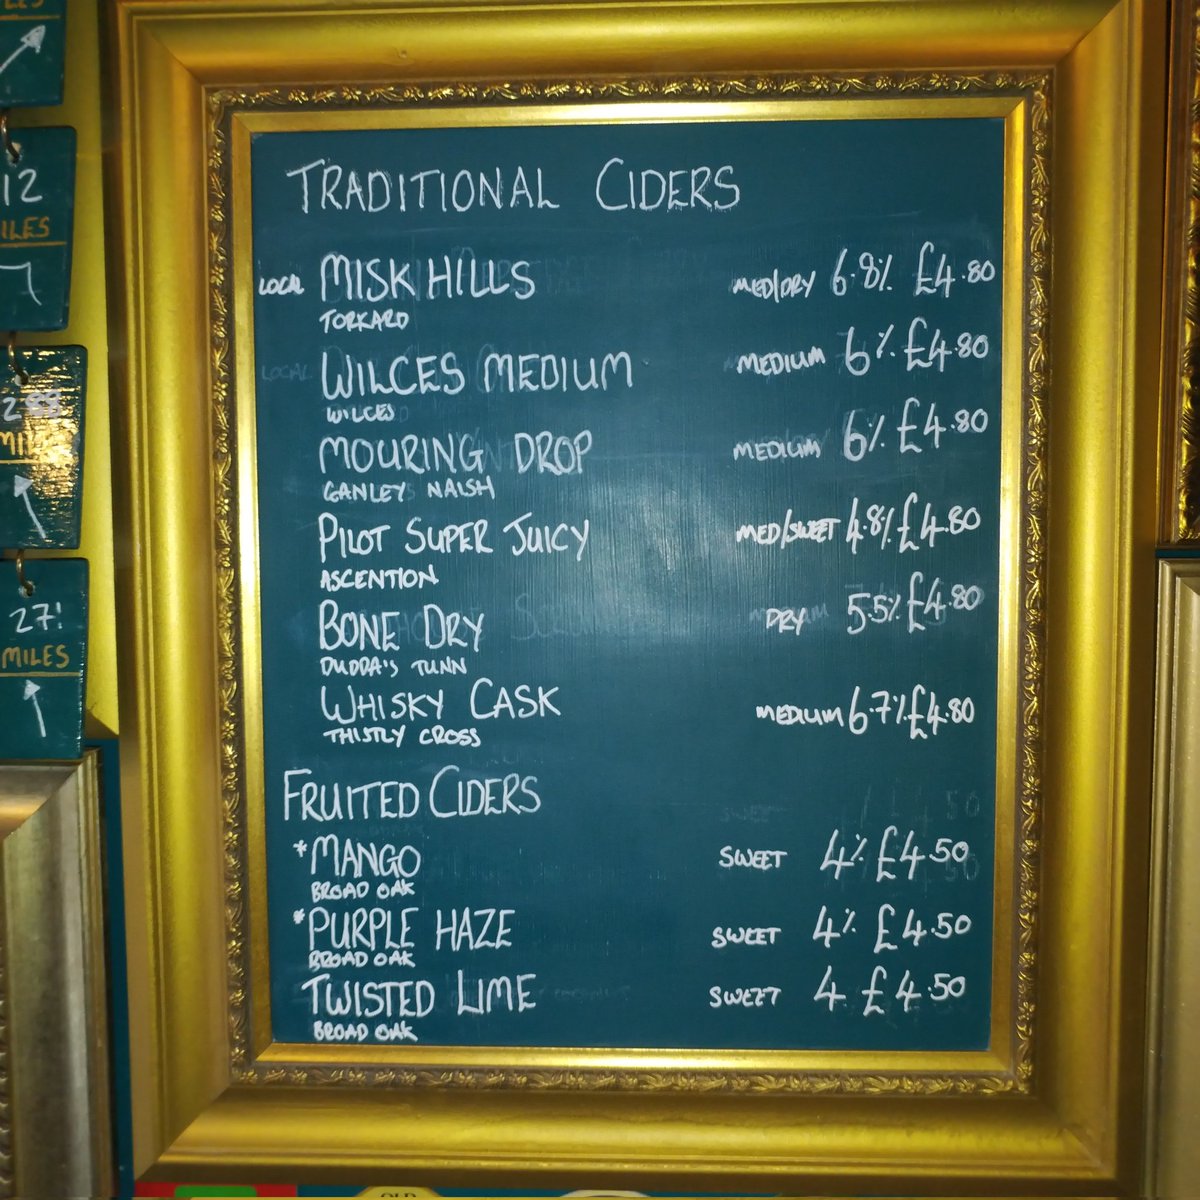 TRADITIONAL CIDERS
LOCAL MISK HILLS MED/DRY 6.8% £4.80
TORKARD
WILCES MEDIUM MEDIUM 6% £4.80
WILCES
MOURING DROP MEDIUM 6% £4.80
GANLEY NAISH
PILOT SUPER JUICY MED/SWEET 4.8% £4.80
ASCENTION
BONE DRY DRY 5.5% £4.80
DUDDA'S TUNN
WHISKY CASK MEDIUM 6.7% £4.80
THISTLY CROSS
FRUITED CIDERS
*MANGO SWEET 4% £4.50
BROAD OAK
*PURPLE HAZE SWEET 4% £4.50
BROAD OAK
TWISTED LIME SWEET 4 £4.50
BROAD OAK
12
MILES
27!
MILES
OLD